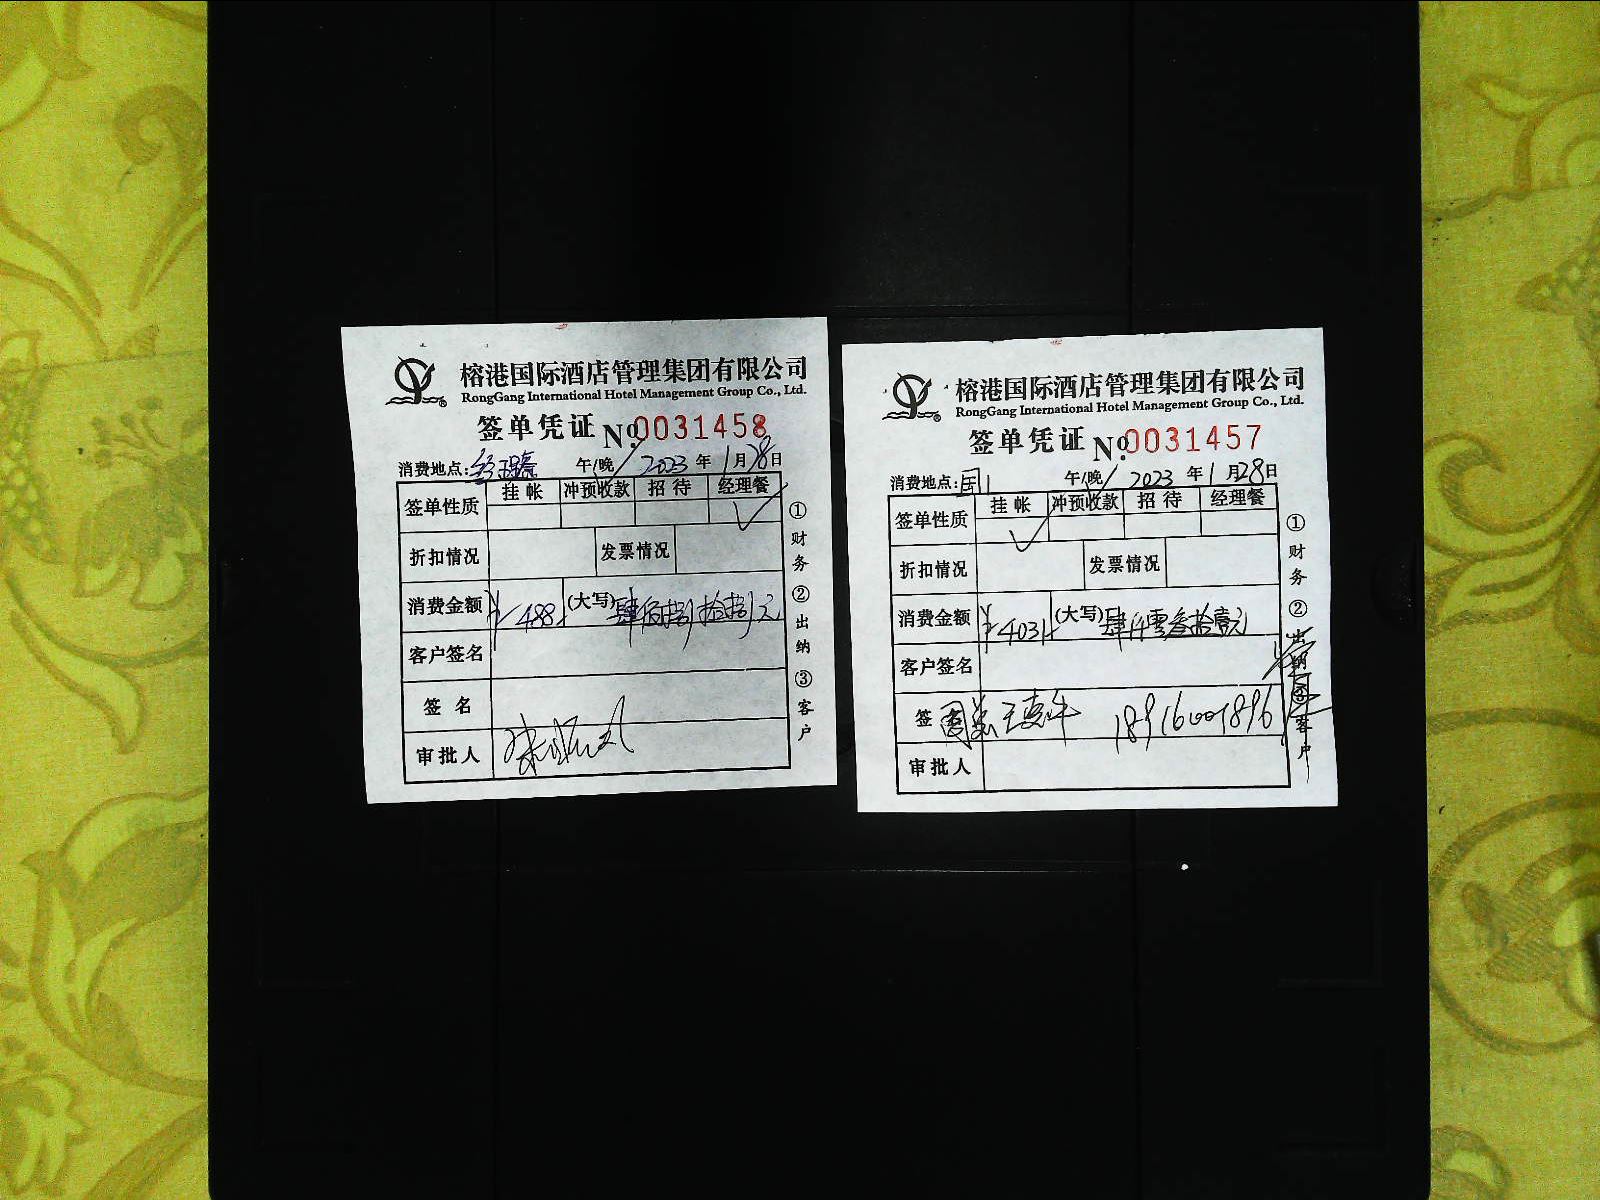 榕港国际酒店管理集团有限公司
RongGang International Hotel Management Group Co., Ltd.
签单凭证 № 0031458
消费地点: 午/晚 2023 年 1 月 28 日
签单性质 挂帐 冲预收款 招待 经理餐
✓
折扣情况 发票情况
消费金额 ¥488 (大写) 肆佰捌拾捌元
客户签名
签名
审批人
①财务 ②出纳 ③客户
榕港国际酒店管理集团有限公司
RongGang International Hotel Management Group Co., Ltd.
签单凭证 № 0031457
消费地点: 国1 午/晚 2023 年 1 月 28 日
签单性质 挂帐 冲预收款 招待 经理餐
✓
折扣情况 发票情况
消费金额 ¥4031 (大写) 肆仟零叁拾壹元
客户签名
签 18916001896
审批人
①财务 ②出纳 ③客户